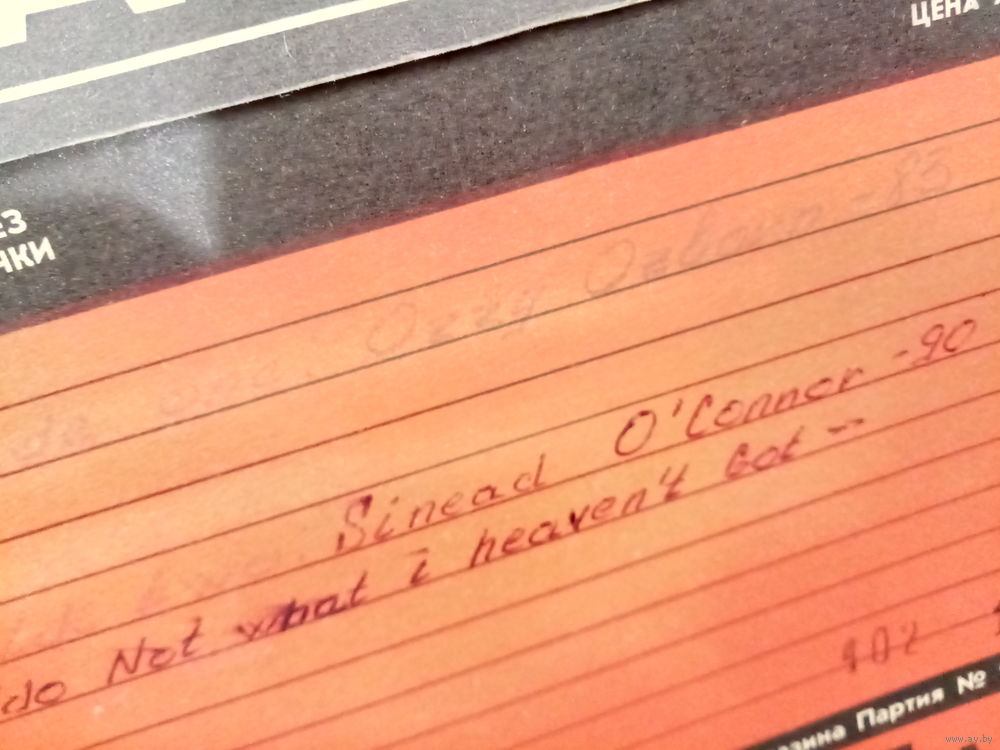 ЦЕНА
ЕЗ
ЧКИ
Ozzy Ozbourn -83
Sinead O'Connor -90
do Not what i heaven't Got --
102
Партия №
www.ay.by